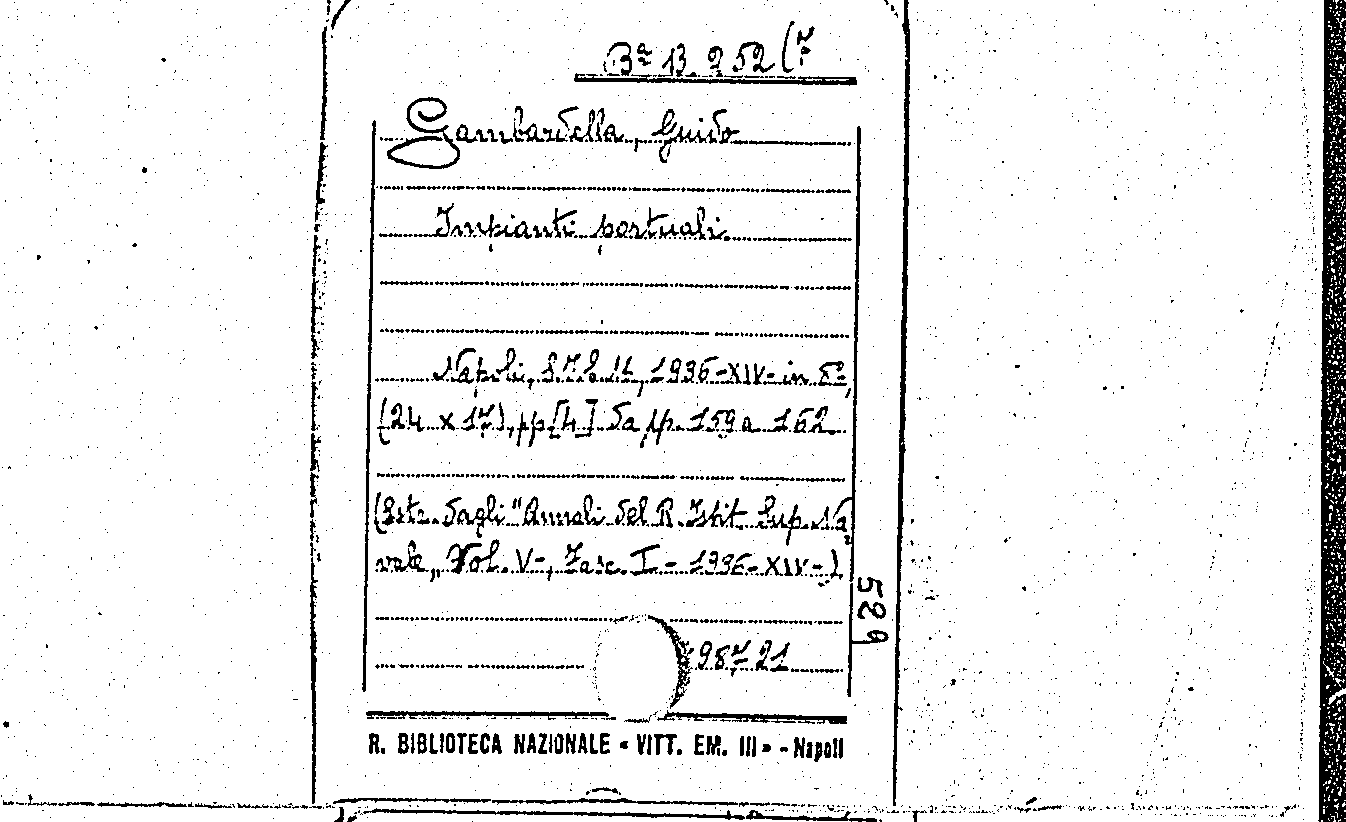 Bª B. 252 (7
Gambardella, Guido
Impianti portuali.
Napoli, 1936-XIV- in 8º,
(24 x 17), pp [4] da pp. 159 a 162
(Estr. dagli "Annali del R. Istit. Sup. Na
vale„ Vol. V-, Fasc. I - 1936-XIV-)
529
98721
R. BIBLIOTECA NAZIONALE « VITT. EM. III » - Napoli